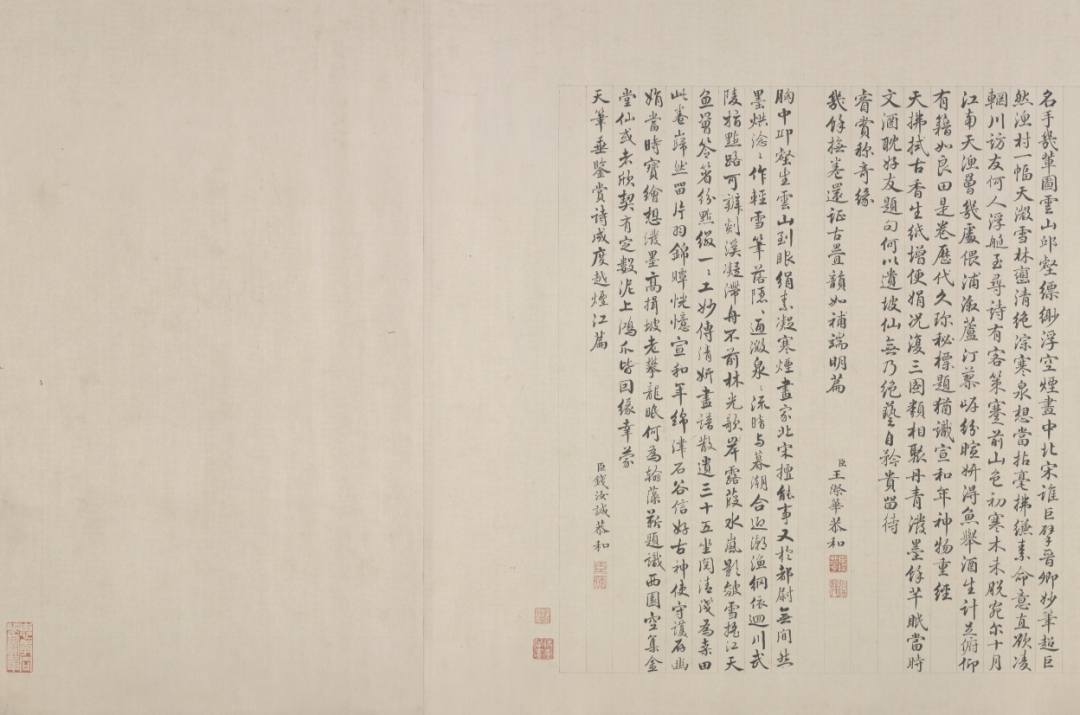 名手幾輩圖雲山邱壑縹緲浮空煙畫中北宋誰巨擘晉卿妙筆超巨
然漁村一幅天微雪林巒清絶淙寒泉想當拈毫拂縑素命意直欲凌
輞川訪友何人浮艇至尋詩有客策蹇前山色初寒木未脫宛尔十月
江南天漁罾幾處偎浦溆蘆汀蓼岸紛暄妍得魚舉酒生計足俯仰
有籍如良田是卷歷代久弥秘標題猶識宣和年神物重經
天拂拭古香生紙增便娟况復三图類相聚丹青潑墨餘芊眠當時
文酒耽好友題句何以遺坡仙無乃絶藝自矜貴留待
睿賞称奇緣
幾餘撫卷還証古疊韻如補端明篇
臣王際華恭和
胸中邱壑生雲山到眼絹素凝寒煙畫家北宋擅能事又於都尉無間然
墨烘淰淰作輕雪筆落隱隱通微泉泉流時与暮潮合迎潮漁網依迴川武
陵坊點路可辨剡溪凝滯舟不前林光歌岸露葭水嵐影皴雪拖江天
魚罾笭箵紛點綴一一工妙傳清妍畫譜散遺三十五坐閱清淺為桑田
此卷巋然留片羽錦贉恍憶宣和年綿津石谷信好古神使守護存幽
娟當時寶繪想潑墨高揖坡老攀龍眠何為翰藻蘄題識西園空集金
堂仙或者欣契有定數泥上鴻爪皆因緣幸蒙
天筆垂鑒賞诗成度越煙江篇
臣錢汝誠恭和